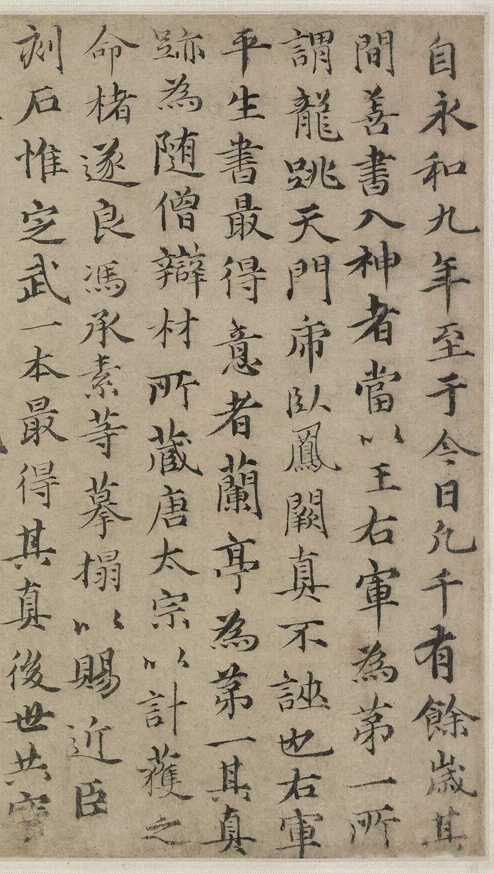 自永和九年至于今日凡千有餘歲其
間善書入神者當以王右軍為第一所
謂龍跳天門虎臥鳳闕真不誣也右軍
平生書最得意者蘭亭為第一其真
跡為隨僧辯材所藏唐太宗以計獲之
命楮遂良馮承素等摹搨以賜近臣
刻石惟定武一本最得其真後世共寶